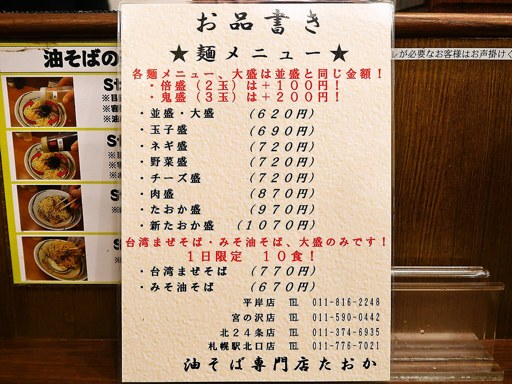 お品書き
★麺メニュー★
各麺メニュー、大盛は並盛と同じ金額！
・倍盛（２玉）は＋１００円！
・鬼盛（３玉）は＋２００円！
・並盛・大盛 （６２０円）
・玉子盛 （６９０円）
・ネギ盛 （７２０円）
・野菜盛 （７２０円）
・チーズ盛 （７２０円）
・肉盛 （８７０円）
・たおか盛 （９７０円）
・新たおか盛 （１０７０円）
台湾まぜそば・みそ油そば、大盛のみです！
１日限定 １０食！
・台湾まぜそば （７７０円）
・みそ油そば （６７０円）
平岸店 ℡ 011-816-2248
宮の沢店 ℡ 011-590-0442
北２４条店 ℡ 011-374-6935
札幌駅北口店 ℡ 011-776-7021
油そば専門店たおか
油そばの
が必要なお客様はお声掛けく